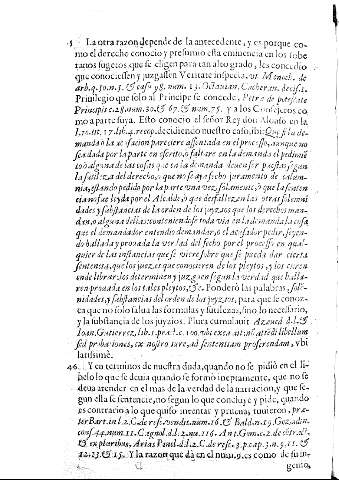 5 La otra razon depende de la antecedente, y es porque co-
mo el derecho conocio y presumio esta eminencia en los sobe
ranos sugetos que se eligen para tan alto grado, les concedio
que conociessen y juzgassen Veritate inspecta, vt Menoch. de
arb. q. 30. n. 5. & casu 98. num. 13. Octauian. decis. 1.
Privilegio que solo al Principe se concede, Petra de potestate
Principis c. 28. num. 30. & 67. & num. 75. y a los Consejeros co
mo a parte suya. Esto conocio el señor Rey don Alonso en la
l. 10. tit. 17. lib. 4. recop. decidiendo nuestro caso, ibi: Que si la de-
manda o la excepcion pareciere assentada en el processo, aunque no
sea dada por la parte en escrito, o faltare en la demanda el pedimiē
to, o alguna de las cosas que en la demanda deue ser puestas, segun
la sutileza del derecho, o que no se aya fecho juramento de calum-
nia, estando pedido por la parte vna vez solamente, o que la senten
cia no fue leyda por el Alcalde, o que desfallezcan las otras solemni
dades y substancias de la orden de los juyzios que los derechos man-
dan, o alguna dellas, conteniendose toda via en la demanda la cosa
que el demandador entendio demandar, o el acusador pedir, seyen-
do hallada y prouada la verdad del fecho por el processo en qual-
quier de las instancias que se viere sobre que se pueda dar cierta
sentencia, que los juezes que conocieren de los pleytos, y los ouieren
de librar, los determinen y juzguen segun la verdad que halla-
ren prouada en los tales pleytos, &c. Pondero las palabras, sole-
nidades, y substancias del orden de los juyzios, para que se conoz-
ca que no solo salua las formulas y sutilezas, sino lo necessario,
y la substancia de los juyzios. Plura cumulauit Azeued. d. l. &
Ioan. Gutierrez, lib. 1. pract. q. 100. nõ eget libellum
sed probationes, ex nostro iure, ad sententiam proferendam, vbi
latissimè.
46. Y en terminos de nuestra duda, quando no se pidio en el li-
belo lo que se deuia quando se formò ineptamente, que no se
deua atender en el mas de la verdad de la narracion, y que se-
gun ella se sentencie, no segun lo que concluye y pide, quando
es contrario a lo que quiso intentar y prueuas tuuieron, præ-
ter Bart. in l. 2. C. de rescind. vendit. num. 16. & Bald. n. 15. Gozadin.
cons. 44. num. 11. Cagnol. d. l. 2. nu. 116. Ant. Gom. c. 2.
& ex pluribus, Arias Pinel. d. l. 2. C. de resc. 3. p. cap. 3. n. 9. 11. &
12. 13. & 15. Y la razon que da en el num. 9. es como de su in-
genio,